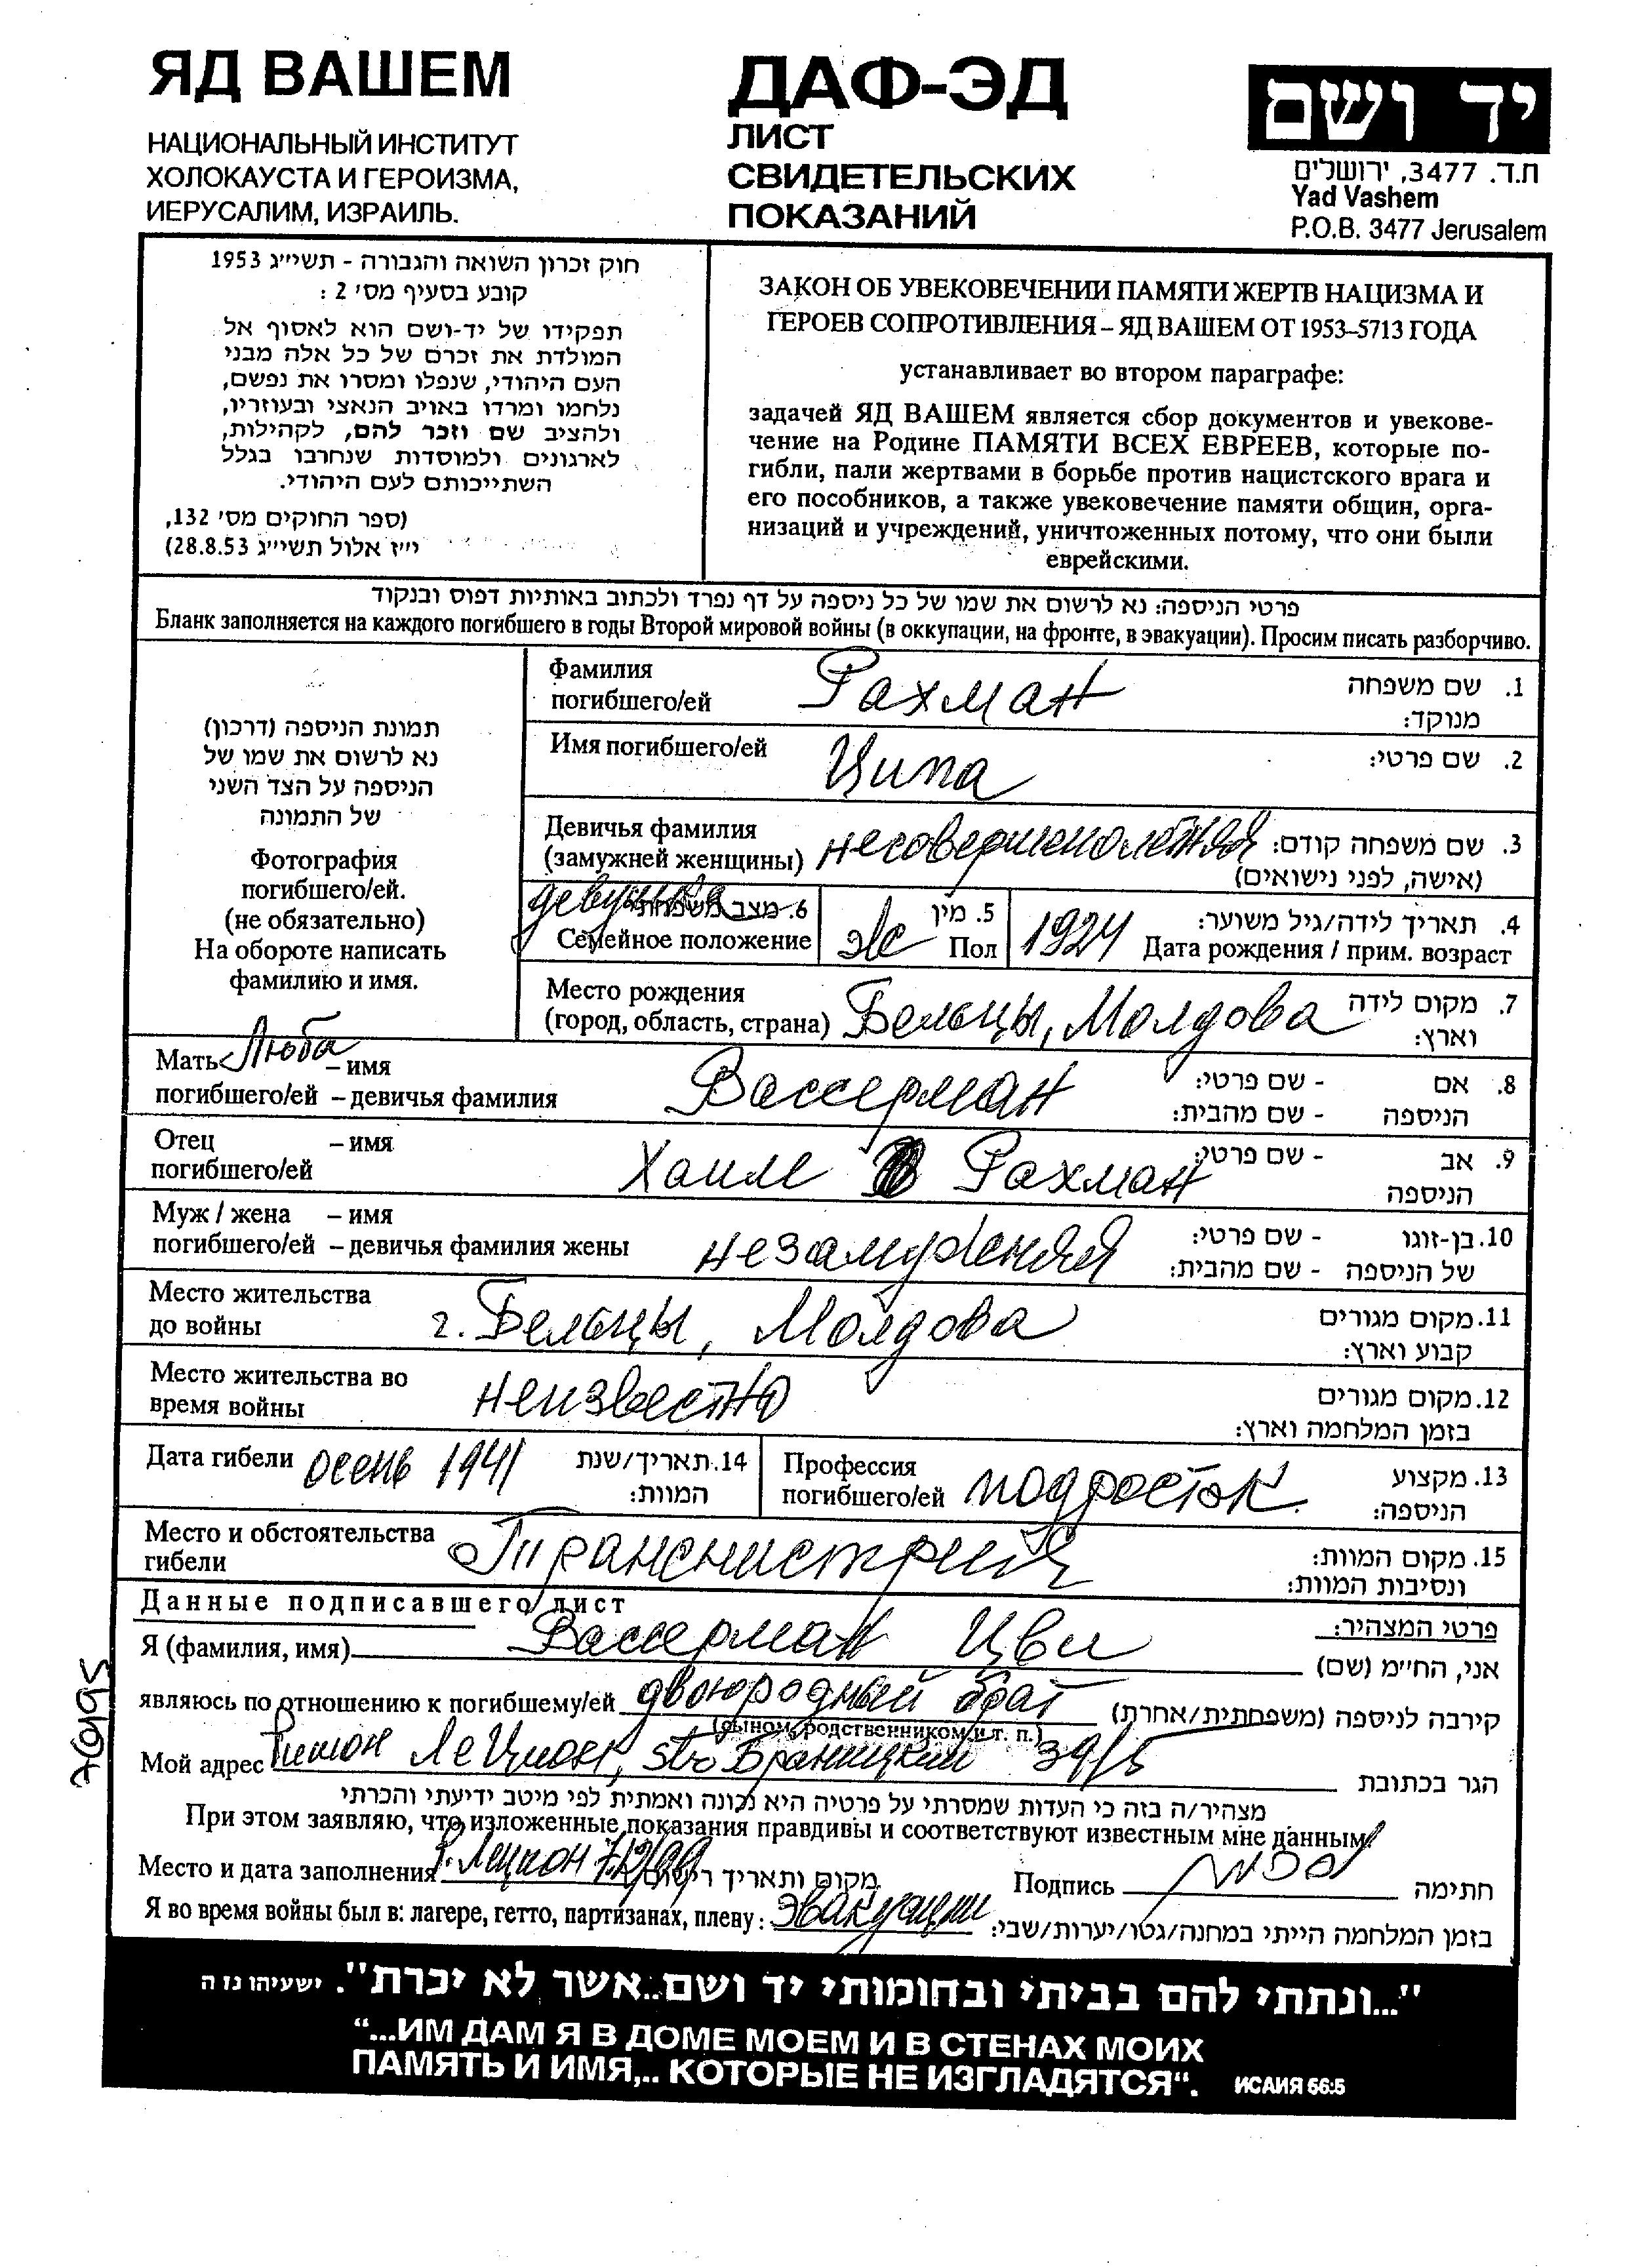 ЯД ВАШЕМ
НАЦИОНАЛЬНЫЙ ИНСТИТУТ
ХОЛОКАУСТА И ГЕРОИЗМА,
ИЕРУСАЛИМ, ИЗРАИЛЬ.
ДАФ-ЭД
ЛИСТ
СВИДЕТЕЛЬСКИХ
ПОКАЗАНИЙ
יד ושם
ת.ד. 3477, ירושלים
Yad Vashem
P.O.B. 3477 Jerusalem
חוק זכרון השואה והגבורה - תשי״ג 1953
קובע בסעיף מס׳ 2 :
תפקידו של יד-ושם הוא לאסוף אל
המולדת את זכרם של כל אלה מבני
העם היהודי, שנפלו ומסרו את נפשם,
נלחמו ומרדו באויב הנאצי ובעוזריו,
ולהציב שם וזכר להם, לקהילות,
לארגונים ולמוסדות שנחרבו בגלל
השתייכותם לעם היהודי.
(ספר החוקים מס׳ 132,
י״ז אלול תשי״ג 28.8.53)
ЗАКОН ОБ УВЕКОВЕЧЕНИИ ПАМЯТИ ЖЕРТВ НАЦИЗМА И
ГЕРОЕВ СОПРОТИВЛЕНИЯ – ЯД ВАШЕМ ОТ 1953–5713 ГОДА
устанавливает во втором параграфе:
задачей ЯД ВАШЕМ является сбор документов и увекове-
чение на Родине ПАМЯТИ ВСЕХ ЕВРЕЕВ, которые по-
гибли, пали жертвами в борьбе против нацистского врага и
его пособников, а также увековечение памяти общин, орга-
низаций и учреждений, уничтоженных потому, что они были
еврейскими.
פרטי הניספה: נא לרשום את שמו של כל ניספה על דף נפרד ולכתוב באותיות דפוס ובנקוד
Бланк заполняется на каждого погибшего в годы Второй мировой войны (в оккупации, на фронте, в эвакуации). Просим писать разборчиво.
תמונת הניספה (דרכון)
נא לרשום את שמו של
הניספה על הצד השני
של התמונה
Фотография
погибшего/ей.
(не обязательно)
На обороте написать
фамилию и имя.
Фамилия погибшего/ей Рахман 1. שם משפחה מנוקד:
Имя погибшего/ей Ципа 2. שם פרטי:
Девичья фамилия (замужней женщины) несовершенолетняя 3. שם משפחה קודם: (אישה, לפני נישואים)
девушка 6. מצב משפחתי Семейное положение
жс 5. מין Пол
1924 4. תאריך לידה/גיל משוער: Дата рождения / прим. возраст
Место рождения (город, область, страна) Бельцы, Молдова 7. מקום לידה וארץ:
Мать Люба – имя
погибшего/ей – девичья фамилия Вассерман 8. אם - שם פרטי: הניספה - שם מהבית:
Отец – имя
погибшего/ей Хаим Рахман 9. אב - שם פרטי: הניספה
Муж / жена – имя
погибшего/ей – девичья фамилия жены незамужняя 10. בן-זוגו - שם פרטי: של הניספה - שם מהבית:
Место жительства до войны г. Бельцы, Молдова 11. מקום מגורים קבוע וארץ:
Место жительства во время войны неизвестно 12. מקום מגורים בזמן המלחמה וארץ:
Дата гибели осень 1941 14. תאריך/שנת המוות:
Профессия погибшего/ей подросток 13. מקצוע הניספה:
Место и обстоятельства гибели Транснистрия 15. מקום המוות: ונסיבות המוות:
Данные подписавшего лист פרטי המצהיר:
Я (фамилия, имя) Вассерман Цви אני, החי״מ (שם)
являюсь по отношению к погибшему/ей двоюродный брат קירבה לניספה (משפחתית/אחרת)
(сыном, родственником и т. п.)
Мой адрес Ришон Ле Цион, str Браницкий 39/5 הגר בכתובת
מצהיר/ה בזה כי העדות שמסרתי על פרטיה היא נכונה ואמתית לפי מיטב ידיעתי והכרתי
При этом заявляю, что изложенные показания правдивы и соответствуют известным мне данным
Место и дата заполнения Р. Лецион 7/2/99 מקום ותאריך רישום Подпись חתימה
Я во время войны был в: лагере, гетто, партизанах, плену: эвакуации בזמן המלחמה הייתי במחנה/גטו/יערות/שבי:
76995
"...ונתתי להם בביתי ובחומותי יד ושם..אשר לא יכרת". ישעיהו נז ה
“...ИМ ДАМ Я В ДОМЕ МОЕМ И В СТЕНАХ МОИХ
ПАМЯТЬ И ИМЯ,.. КОТОРЫЕ НЕ ИЗГЛАДЯТСЯ“. ИСАИЯ 56:5